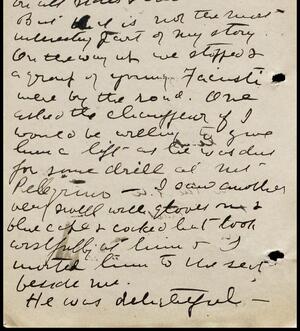 on all sides
But that is not the most
interesting part of my story.
On the way up we stopped &
a group of young Fascisti
were by the road. One
asked the chauffeur if I
would be willing to give
him a lift as he was due
for some drill at
Pelegrino — I saw another
very swell with gloves on &
blue cape & cocked hat look
wistfully at him & I
invited him to the seat
beside me.
He was delightful —